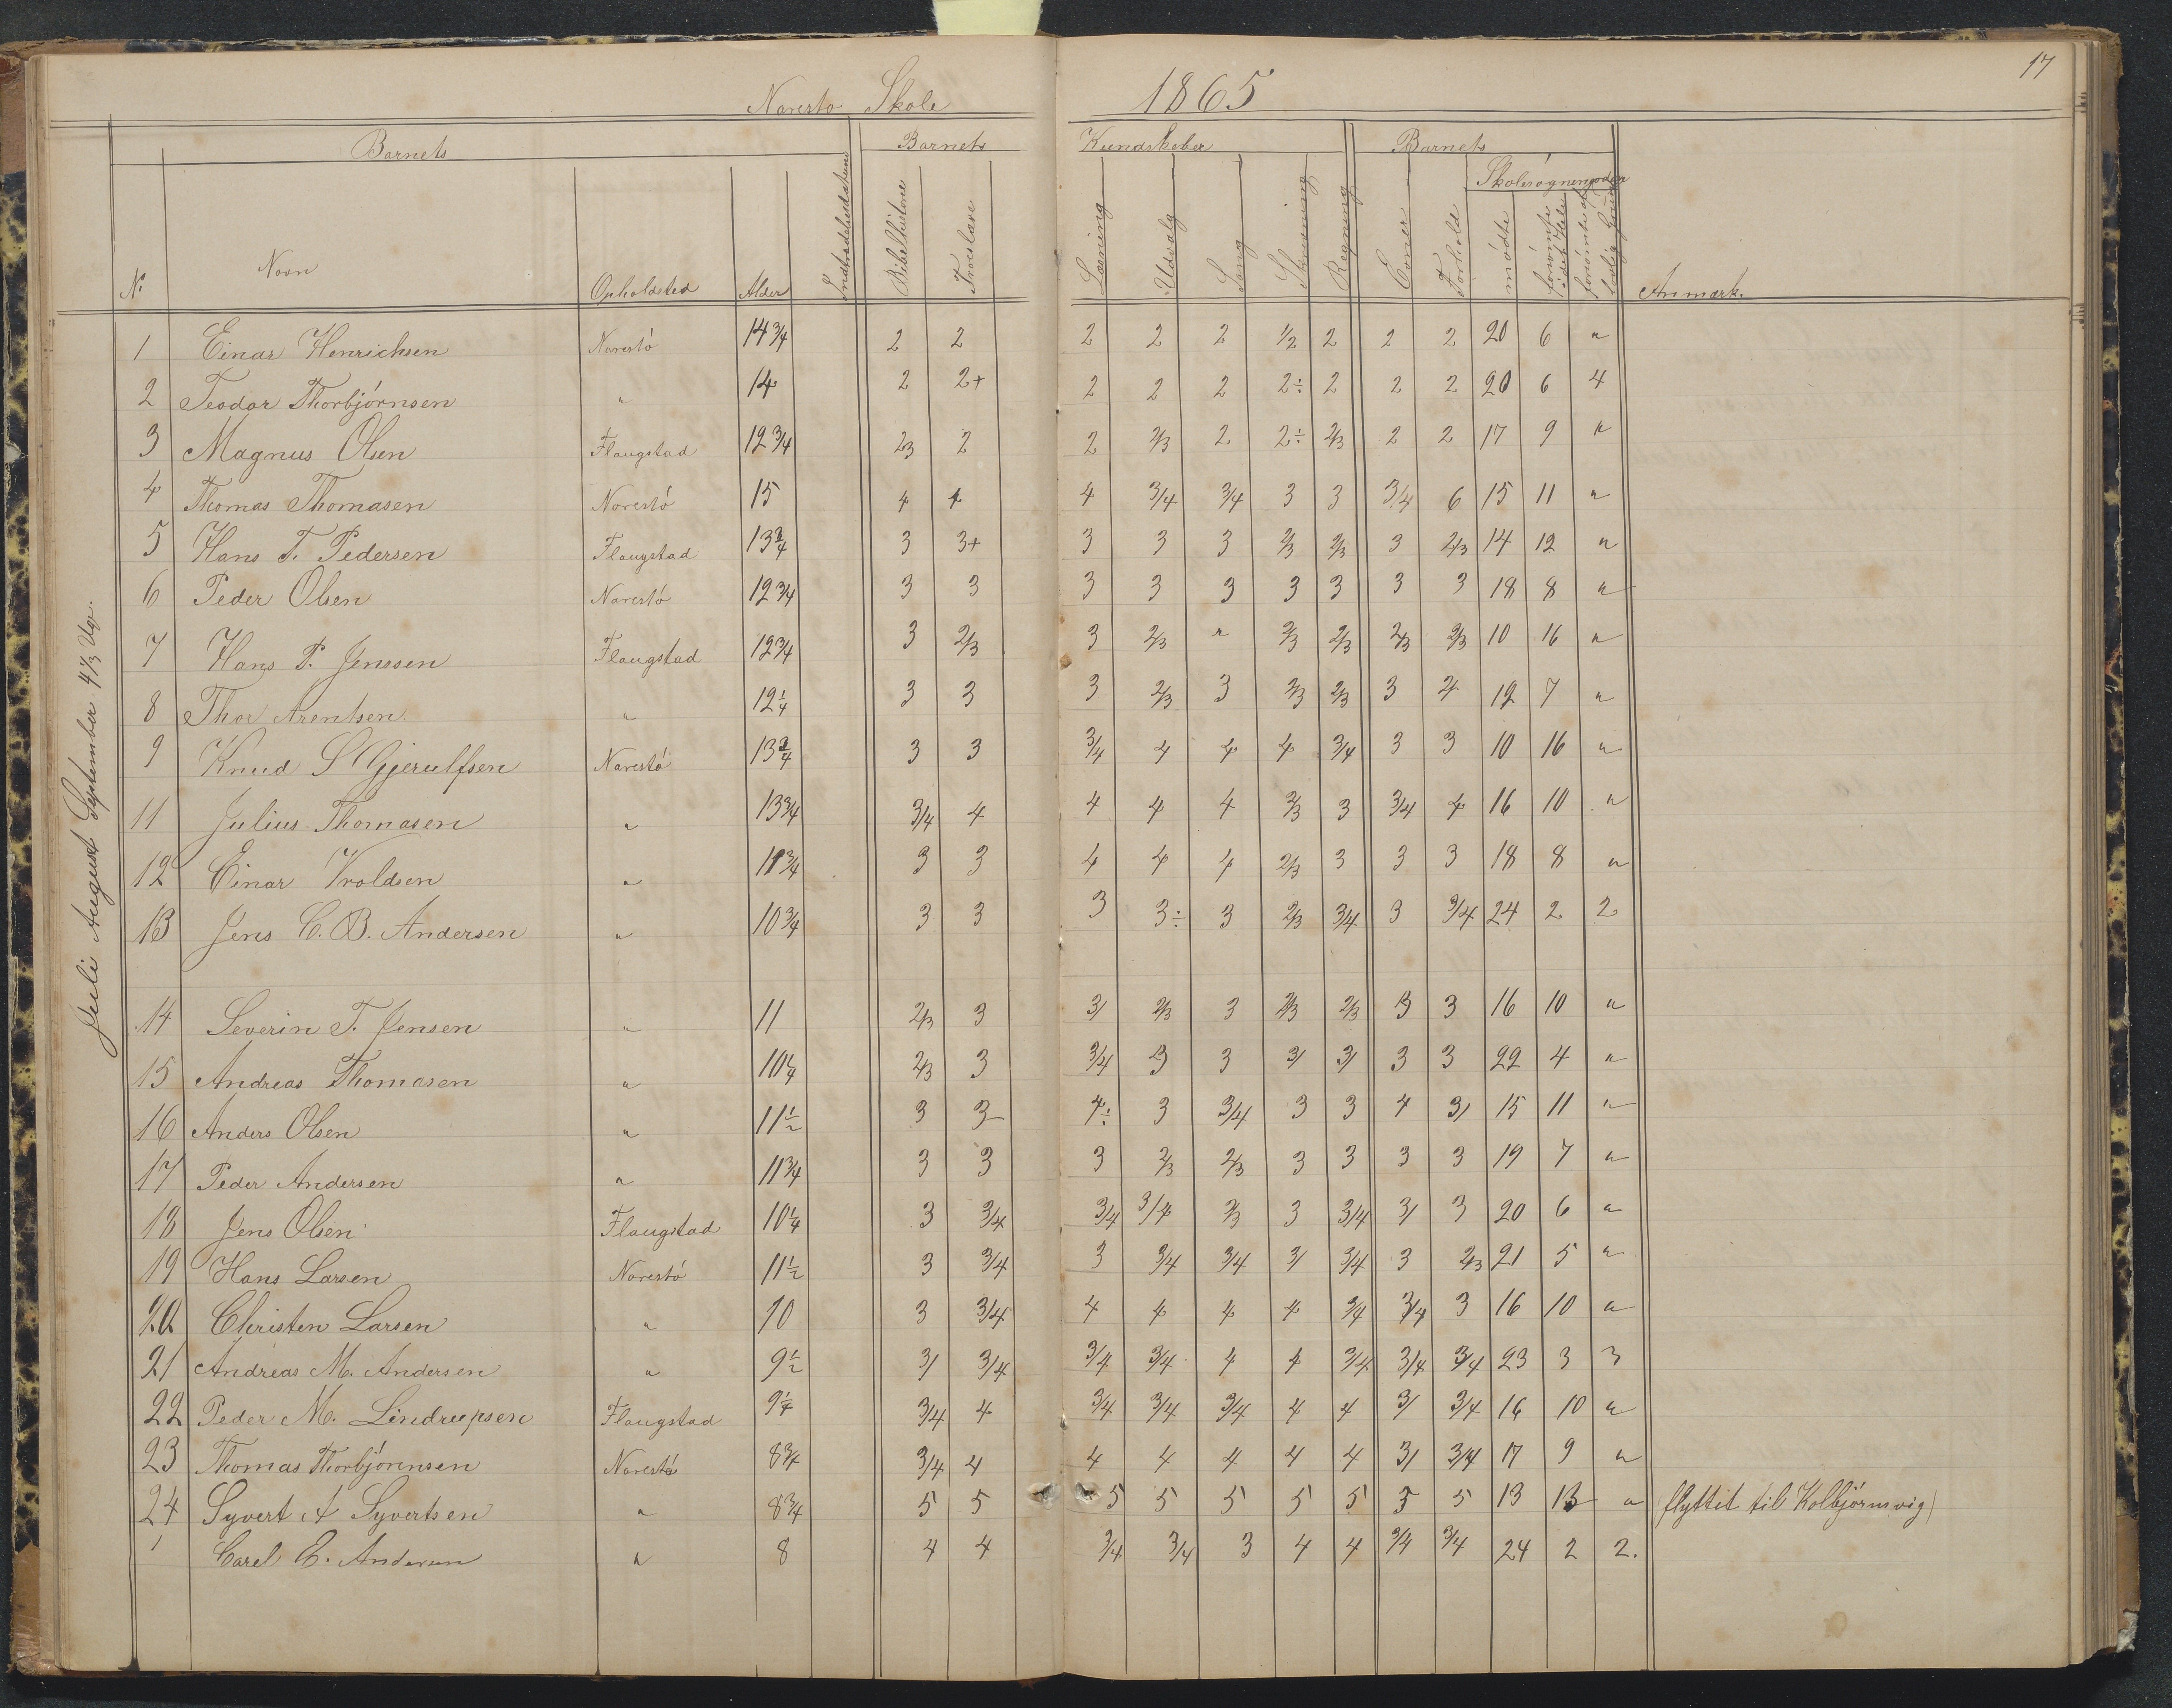 Narestø Skole 1865 17
Barnets Barnets Kundskaber Barnets
Skolesøgningsdage
No Navn Opholdsted Alder Indtrædelsesdatum Bibelhistorie Troeslære Læsning Udvalg Sang Skrivning Regning Evner Forhold mødte forsømte i det Hele forsømte af lovlig Grund Anmærk.
Juli August September 4 1/3 Ug.
1 Einar Henrichsen Narestö 14 3/4 2 2 2 2 2 1/2 2 2 2 20 6 "
2 Teodor Thorbjörnsen " 14 2 2+ 2 2 2 2÷ 2 2 2 20 6 4
3 Magnus Olsen Flaugstad 12 3/4 2/3 2 2 2/3 2 2÷ 2/3 2 2 17 9 "
4 Thomas Thomasen Narestö 15 4 4 4 3/4 3/4 3 3 3/4 6 15 11 "
5 Hans T. Pedersen Flaugstad 13 3/4 3 3+ 3 3 3 2/3 2/3 3 2/3 14 12 "
6 Peder Olsen Narestö 12 3/4 3 3 3 3 3 3 3 3 3 18 8 "
7 Hans P. Jenssen Flaugstad 12 3/4 3 2/3 3 2/3 " 2/3 2/3 2/3 2/3 10 16 "
8 Thor Arentsen " 12 1/4 3 3 3 2/3 3 2/3 2/3 3 4 19 7 "
9 Knud S Gjerulfsen Narestö 13 3/4 3 3 3/4 4 4 4 3/4 3 3 10 16 "
11 Julius Thomasen " 13 3/4 3/4 4 4 4 4 2/3 3 3/4 4 16 10 "
12 Einar Vroldsen " 11 3/4 3 3 4 4 4 2/3 3 3 3 18 8 "
13 Jens C. B. Andersen " 10 3/4 3 3 3 3÷ 3 2/3 3/4 3 3/4 24 2 2
14 Severin T. Jensen " 11 2/3 3 3/ 2/3 3 2/3 2/3 3 3 16 10 "
15 Andreas Thomasen " 10 1/4 2/3 3 3/4 3 3 3/ 3/ 3 3 22 4 "
16 Anders Olsen " 11 1/2 3 3 4÷ 3 3/4 3 3 4 3/ 15 11 "
17 Peder Andersen " 11 3/4 3 3 3 2/3 2/3 3 3 3 3 19 7 "
18 Jens Olsen Flaugstad 10 1/4 3 3/4 3/4 3/4 2/3 3 3/4 3/ 3 20 6 "
19 Hans Larsen Narestö 11 1/2 3 3/4 3 3/4 3/4 3/ 3/4 3 2/3 21 5 "
20 Christen Larsen " 10 3 3/4 4 4 4 4 3/4 3/4 3 16 10 "
21 Andreas M. Andersen " 9 1/2 3/ 3/4 3/4 3/4 4 4 3/4 3/4 3/4 23 3 3
22 Peder M. Lindrupsen Flaugstad 9 1/4 3/4 4 3/4 3/4 3/4 4 4 3/ 3/4 16 10 "
23 Thomas Thorbjörensen Narestö 8 3/4 3/4 4 4 4 4 4 4 3/ 3/4 17 9 "
24 Syvert A Syvertsen " 8 3/4 5 5 5 5 5 5 5 5 5 13 13 " (flyttet til Kolbjörnsvig)
Carel E. Andersen " 8 4 4 3/4 3/4 3 4 4 3/4 3/4 24 2 2.